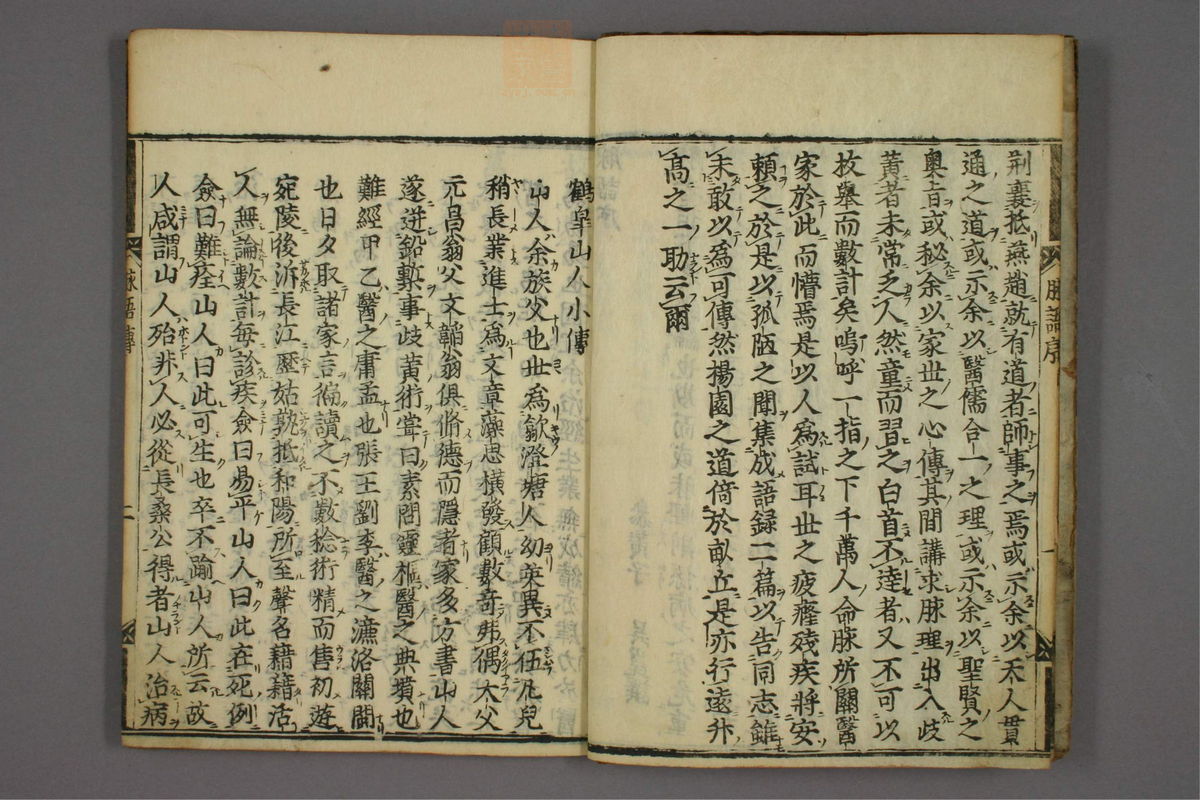 荆襄抵燕趙就有道者師事之焉或示余以天人貫
通之道或示余以醫儒合一之理或示余以聖賢之
奧旨或秘余以家世之心傳其間講求脉理出入歧
黄者未常乏人然童而習之白首不逹者又不可以
枚舉而數計矣嗚呼一指之下千萬人命脉所關醫
家於此而懵焉是以人為試耳世之疲癃殘疾將安
頼之於是以孤陋之聞集成語録二篇以告同志雖
未敢以為可傳然揚園之道倚於畒丘是亦行遠升
髙之一助云爾
脉語序
一
鶴皐山人小傳
山人余族父也世為歙澄塘人幼英異不伍凡兒
稍長業進士為文章藻思橫發顧數竒弗偶大父
元昌翁父文韜翁俱脩德而隱者家多方書山人
遂迸鉛槧事歧黄術嘗曰素問靈樞醫之典墳也
難經甲乙醫之庸孟也張王劉李醫之濂洛關閩
也日夕取諸家言徧讀之不數稔術精而售初遊
宛陵後泝長江歷姑孰抵和陽所至聲名籍籍活
人無論數計每診疾僉曰易平山人曰此在死例
僉曰難痊山人曰此可生也卒不踰山人所云故
人咸謂山人殆非人必從長桑公得者山人治病
脉語傳
二